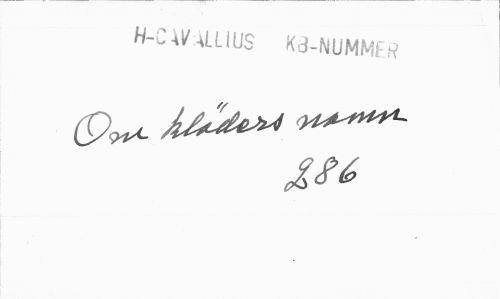 H-CAVALLIUS KB-NUMMER
Om kläders namn
286